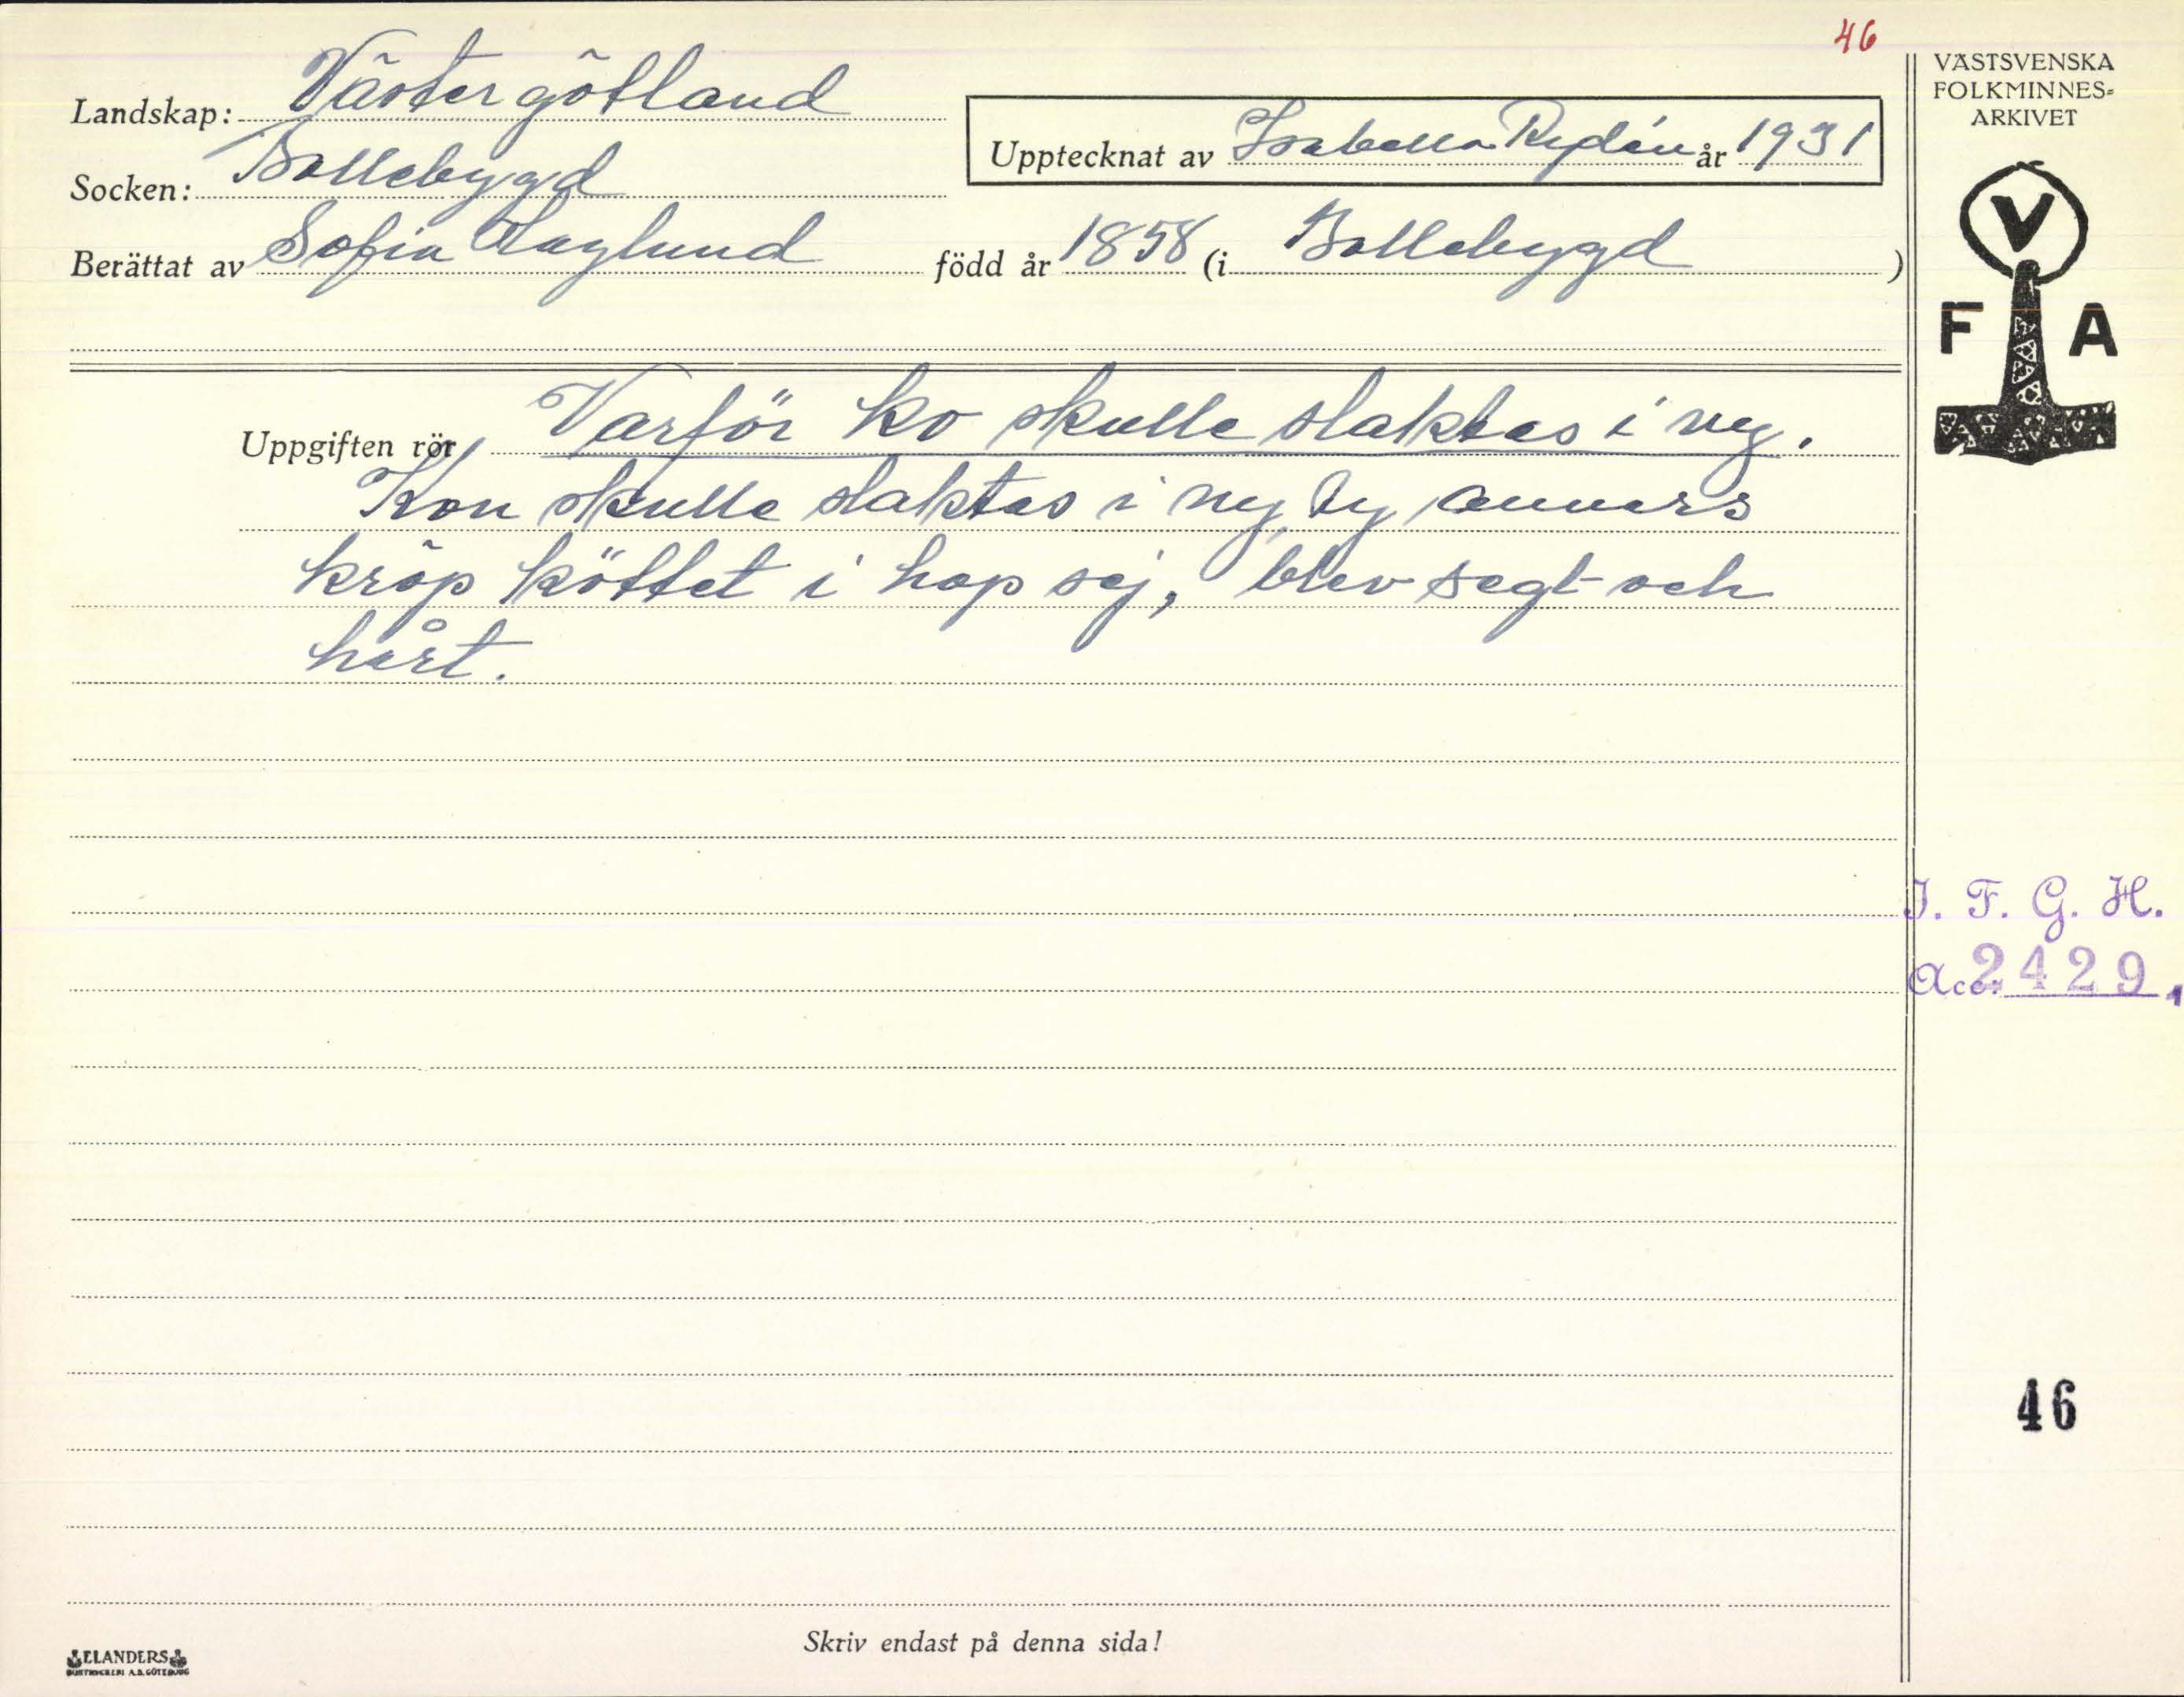 46
Landskap: Västergötland
Socken: Bollebygd
Upptecknat av Isabella Rydén år 1931
Berättat av Sofia Haglund född år 1858 (i Bollebygd)
Uppgiften rör Varför ko skulle slaktas i ny.
Kon skulle slaktas i ny, ty annars
kröp köttet i hop sej, blev segt och
hårt.
VÄSTSVENSKA
FOLKMINNES-
ARKIVET
V
F A
I. F. G. H.
Acc. 2429,
46
Skriv endast på denna sida!
ELANDERS
BOKTRYCKERI A.B. GÖTEBORG